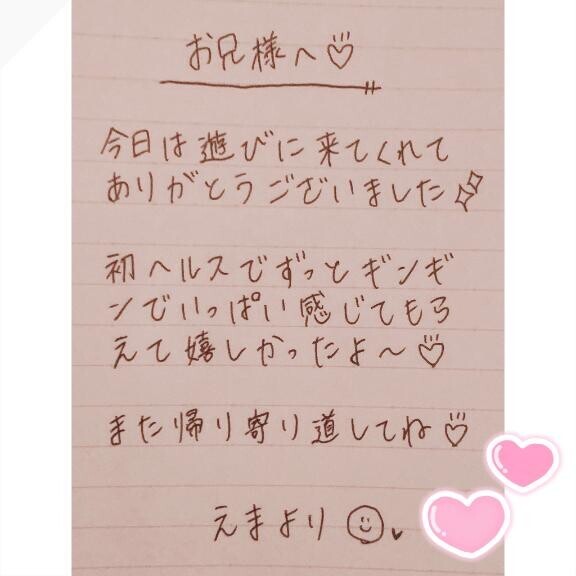 お兄様へ♡
今日は遊びに来てくれて
ありがとうございました✨
初ヘルスでずっとギンギ
ンでいっぱい感じてもら
えて嬉しかったよ〜♡
また帰り寄り道してね♡
えまより☺♥